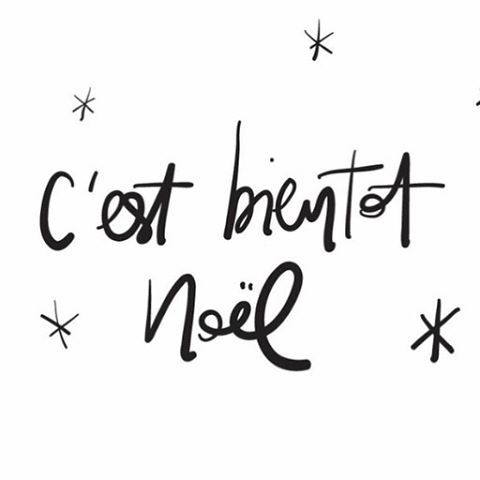 c'est bientot
Noël